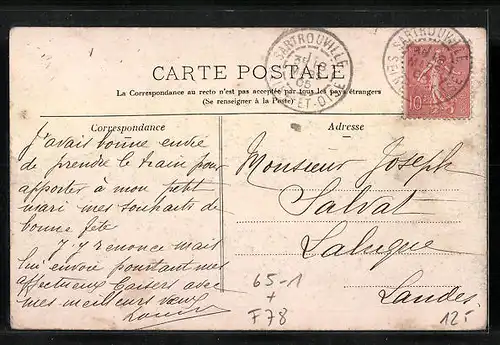 SARTROUVILLE
ET-OISE
SARTROUVILLE
10
CARTE POSTALE
La Correspondance au recto n'est pas acceptée par tous les pays étrangers
(Se renseigner à la Poste)
Correspondance
J'avais bonne envie
de prendre le train pour
apporter à mon petit
mari mes souhaits de
bonne fête
J'y renonce mais
lui envoie pourtant mes
affectueux baisers avec
mes meilleurs vœux
Adresse
Monsieur Joseph
Salvat
Laluque
Landes
65-1
+
F78
12-